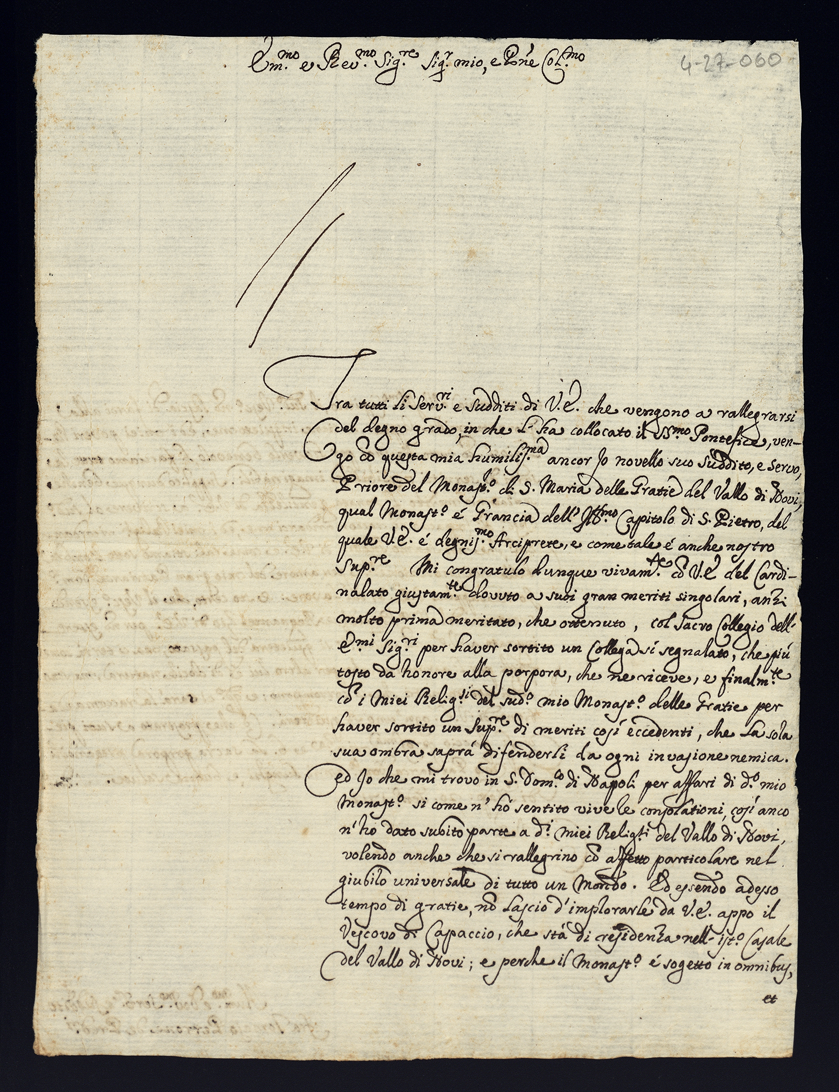 Em.mo e Rev.mo Sig.re Sig.r mio, e Pñe Col.mo
4-27-060
Tra tutti li Serv.ri e sudditi di V.E. che vengono a rallegrarsi
del degno grado, in che l'ha collocato il SS.mo Pontefice, ven-
go cõ questa mia humilis.ma ancor Io novello suo suddito, e servo,
Priore del Monast.o di S. Maria delle Gratie del Vallo di Novi,
qual Monast.o é Grancia dell' Ill.mo Capitolo di S. Pietro, del
quale V.E. é degnis.mo Arciprete, e come tale é anche nostro
Sup.re Mi congratulo dunque vivam.te cõ V.E. del Cardi-
nalato giustam.te dovuto a suoi gran meriti singolari, anzi
molto prima meritato, che ottenuto, col sacro Collegio dell'
E.mi Sig.ri per haver sortito un Collega sí segnalato, che piú
tosto da honore alla porpora, che ne riceve, e finalm.te
cõ i Miei Relig.si del sud.o mio Monast.o delle Gratie per
haver sortito un Sup.re di meriti cosí eccedenti, che la sola
sua ombra saprá difenderli da ogni invasione nemica.
ed Io che mi trovo in S. Dom.o di Napoli per affari di d.o mio
Monast.o si come n'hó sentito vive le consolationi, cosí anco
n'hó dato subito parte a d.i miei Religsi del Vallo di Novi,
volendo anche che si rallegrino cõ affetto particolare nel
giubilo universale di tutto un Mondo. Ed essendo adesso
tempo di gratie, nõ lascio d'implorarle da V.E. appo il
Vescovo di Capaccio, che stá di residenza nell' ist.o Casale
del Vallo di Novi; e perche il Monast.o é sogetto in omnibus,
et